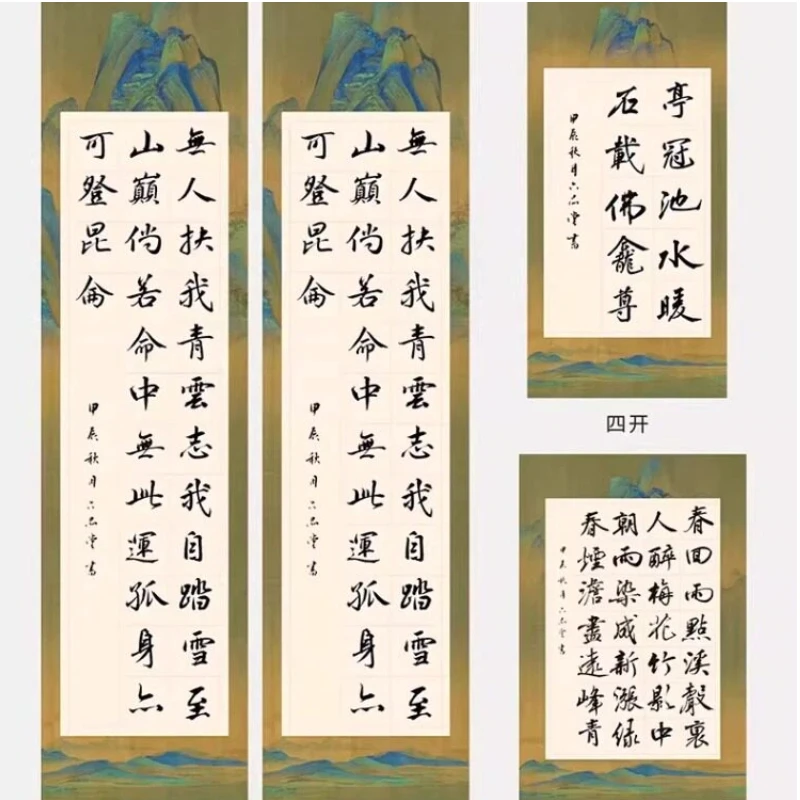 無人扶我青雲志我自踏雪至
山巔倘若命中無此運孤身亦
可登昆侖
甲辰秋月六品堂書
無人扶我青雲志我自踏雪至
山巔倘若命中無此運孤身亦
可登昆侖
甲辰秋月六品堂書
亭冠池水暖
石載佛龕尊
甲辰秋月六品堂書
四开
春回雨點溪聲裏
人醉梅花竹影中
朝雨染成新漲緑
春煙澹盡遠峰青
甲辰秋月六品堂書